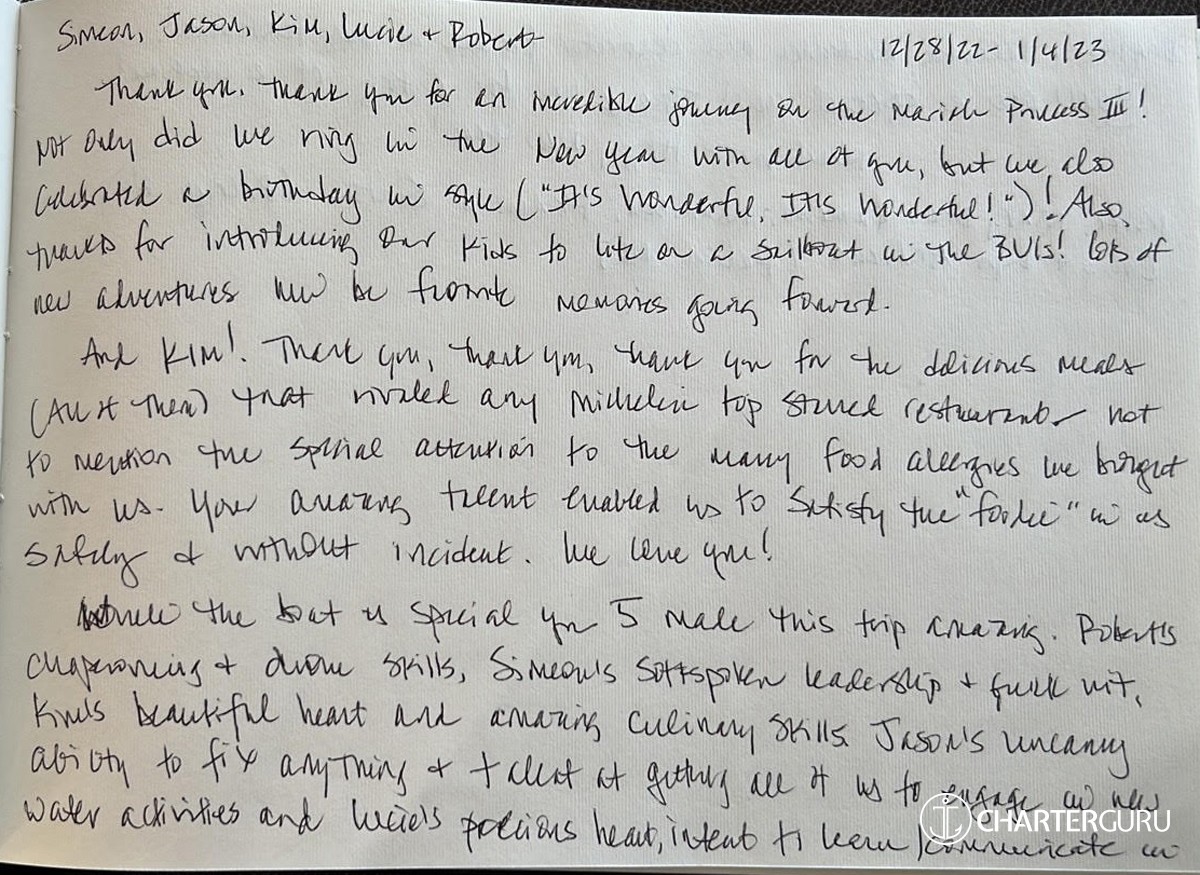 Simeon, Jason, Kim, Lucie + Robert
12/28/22 - 1/4/23
Thank you, thank you for an incredible journey on the Mariah Princess III!
Not only did we ring in the New Year with all of you, but we also
celebrated a birthday in style ("It's Wonderful, It's Wonderful!")! Also,
thanks for introducing our kids to life on a sailboat in the BVIs! Lots of
new adventures will be favorite memories going forward.
And KIM! Thank you, thank you, thank you for the delicious meals
(All of Them) that rivaled any Michelin top starred restaurant - not
to mention the special attention to the many food allergies we brought
with us. Your amazing talent enabled us to satisfy the "foodie" in us
safely & without incident. We love you!
While the boat is special you 5 made this trip amazing. Robert's
chaperoning + drone skills, Simeon's softspoken leadership + quick wit,
Kim's beautiful heart and amazing culinary skills, Jason's uncanny
ability to fix anything & talent at getting all of us to engage in new
water activities and Lucie's precious heart, intent to learn/communicate in
CHARTERGURU